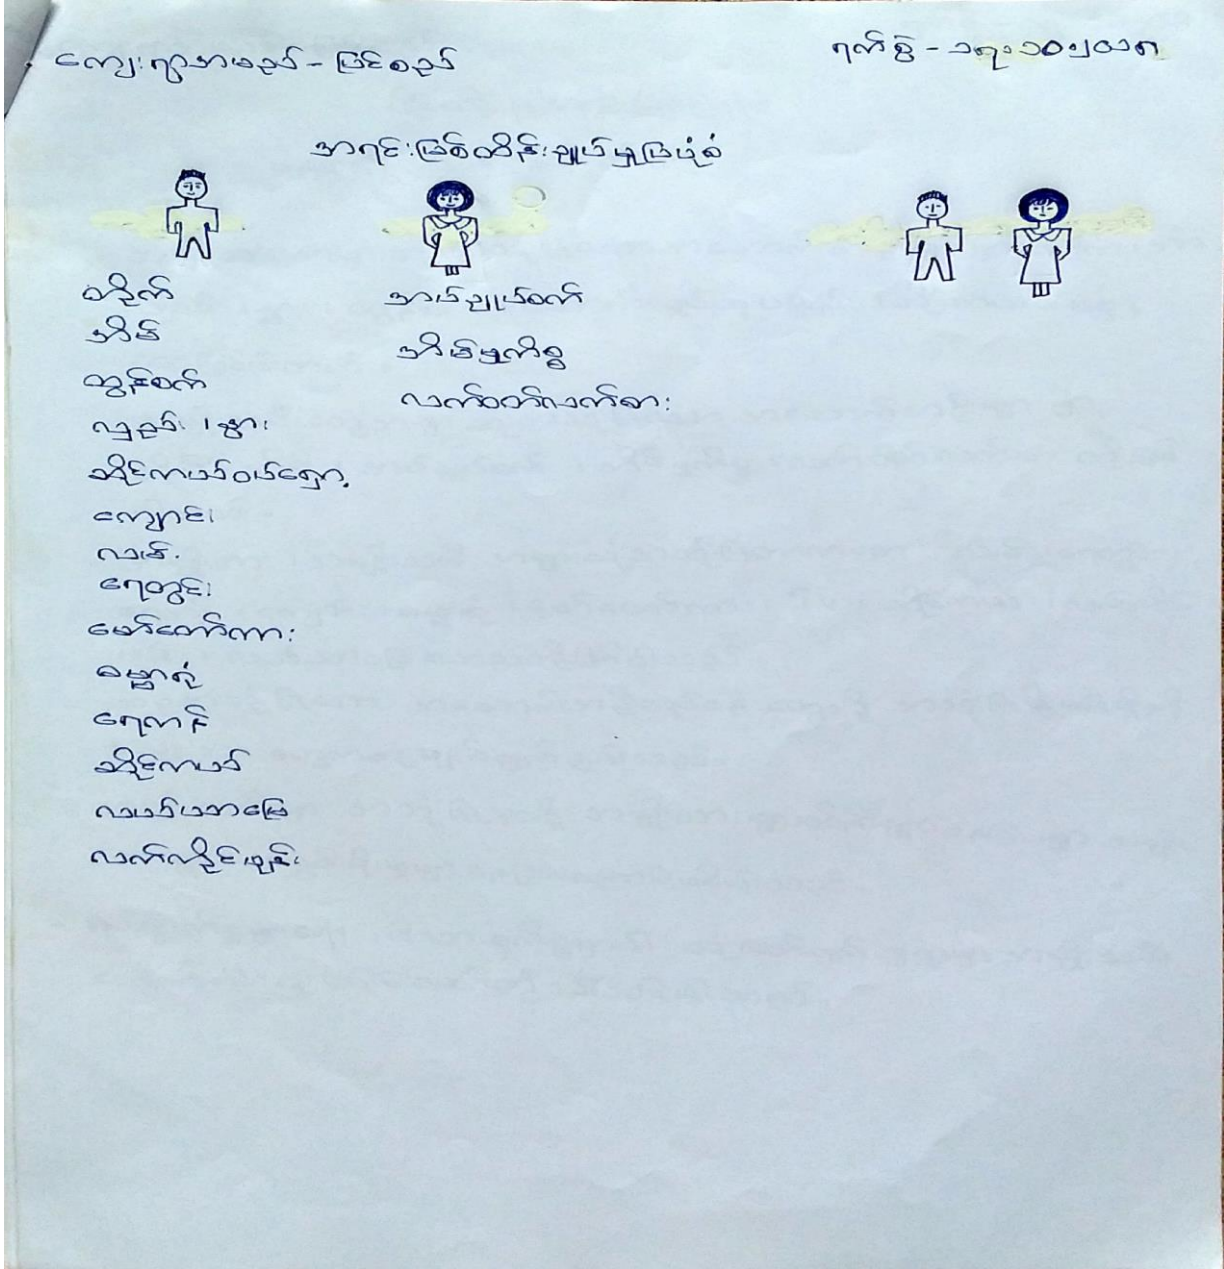 ကျေးရွာအမည် - မြင်စည်
ရက်စွဲ -
အရင်းမြစ်ထိန်းချုပ်မှုပြပုံစံ
တိုက်
အိမ်
ထွန်စက်
လှည်း၊ နွား
ဆိုင်ကယ်ဝယ်ရော့
ကျောင်း
လမ်း
ရေတွင်း
မော်တော်ကား
ဓမ္မာရုံ
ရေကန်
ဆိုင်ကယ်
လယ်ယာမြေ
လက်ကိုင်ဖုန်း
အပ်ချုပ်စက်
အိမ်မှုကိစ္စ
လက်ဝတ်လက်စား